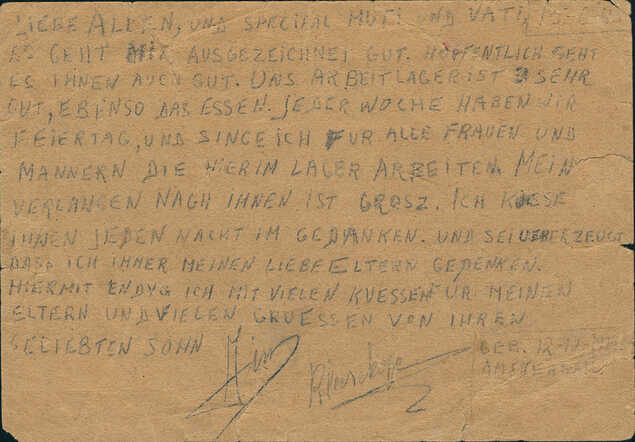 LIEBE ALLEN, UND SPECIAAL MUTI UND VATI,
ES GEHT MIR AUSGEZEICHNET GUT. HOFFENTLICH GEHT
ES IHNEN AUCH GUT. DAS ARBEITLAGER IST SEHR
GUT, EBENSO DAS ESSEN. JEDER WOCHE HABEN WIR
FEIERTAG, UND SINGE ICH FUR ALLE FRAUEN UND
MANNERN DIE HIER IM LAGER ARBEITEN. MEIN
VERLANGEN NAGH IHNEN IST GROSZ. ICH KUESE
IHNEN JEDEN NACKT IM GEDANKEN. UND SEI UEBERZEUGT
DASS ICH IMMER MEINEN LIEBE ELTERN GEDENKEN.
HIERMIT ENDYG ICH MIT VIELEN KUESSEN FUR MEINEN
ELTERN UND VIELEN GRUESSEN VON IHREN
GELIEBTEN SOHN
GEB. 12-11-
AMSTERDAM